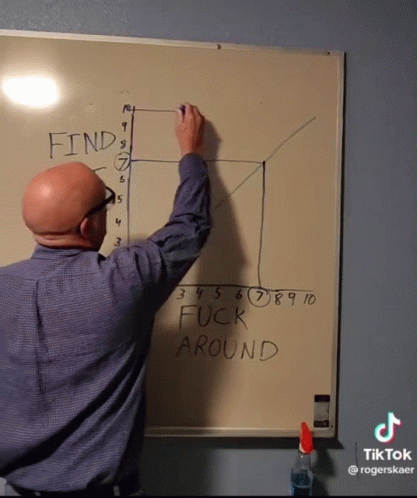 10
9
FIND
8
7
6
5
4
3
3 4 5 6 7 8 9 10
FUCK
AROUND
TikTok
@rogerskaer